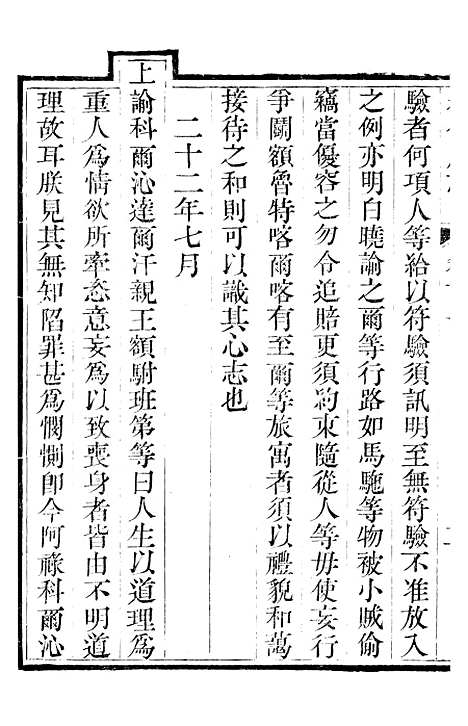 驗者何項人等給以符驗須訊明至無符驗不准放入
之例亦明白曉諭之爾等行路如馬駞等物被小賊偷
竊當優容之勿令追賠更須約束隨從人等毋使妄行
爭鬬額魯特喀爾喀有至爾等旅寓者須以禮貌和藹
接待之和則可以識其心志也
二十二年七月
上諭科爾沁達爾汗親王額駙班第等曰人生以道理爲
重人爲情欲所牽恣意妄爲以致喪身者皆由不明道
理故耳朕見其無知陷罪甚爲憫惻卽今阿祿科爾沁